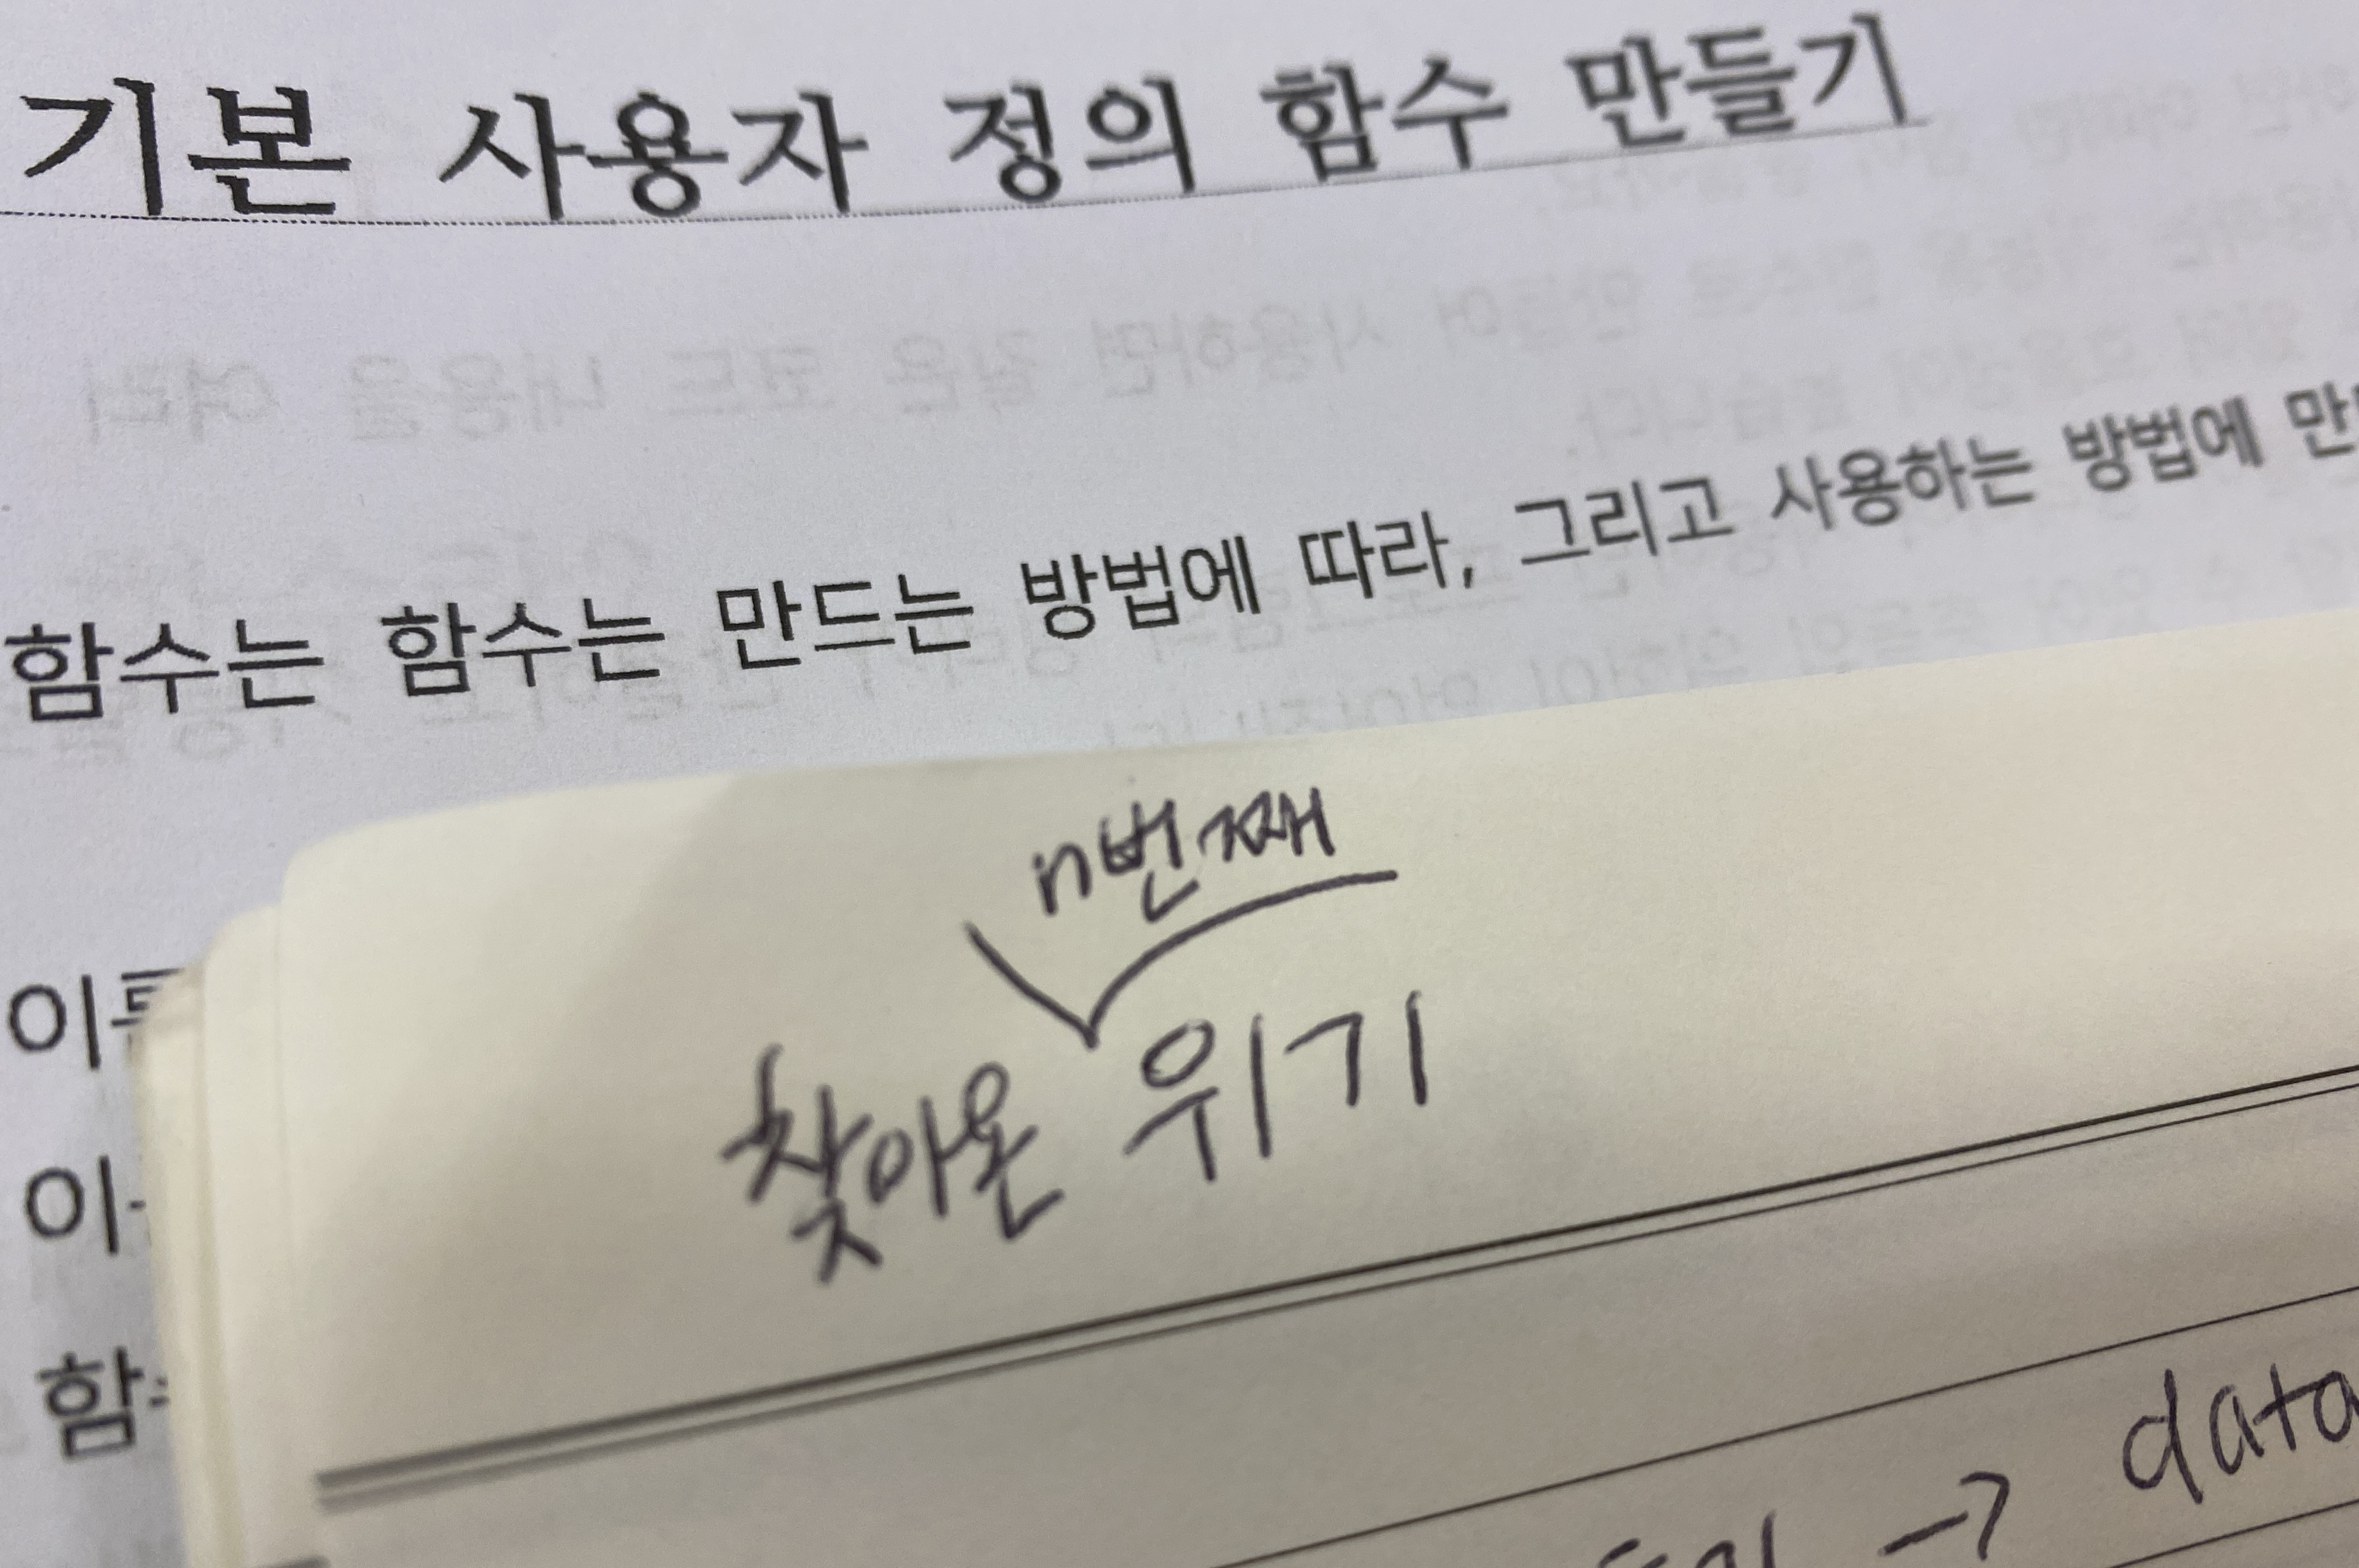 기본 사용자 정의 함수 만들기
함수는 함수는 만드는 방법에 따라, 그리고 사용하는 방법에
n번째
찾아온 위기
→ data